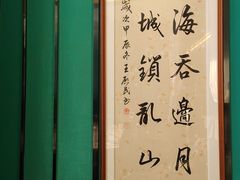 海吞邊月
城鎖亂山
歲次甲辰冬王